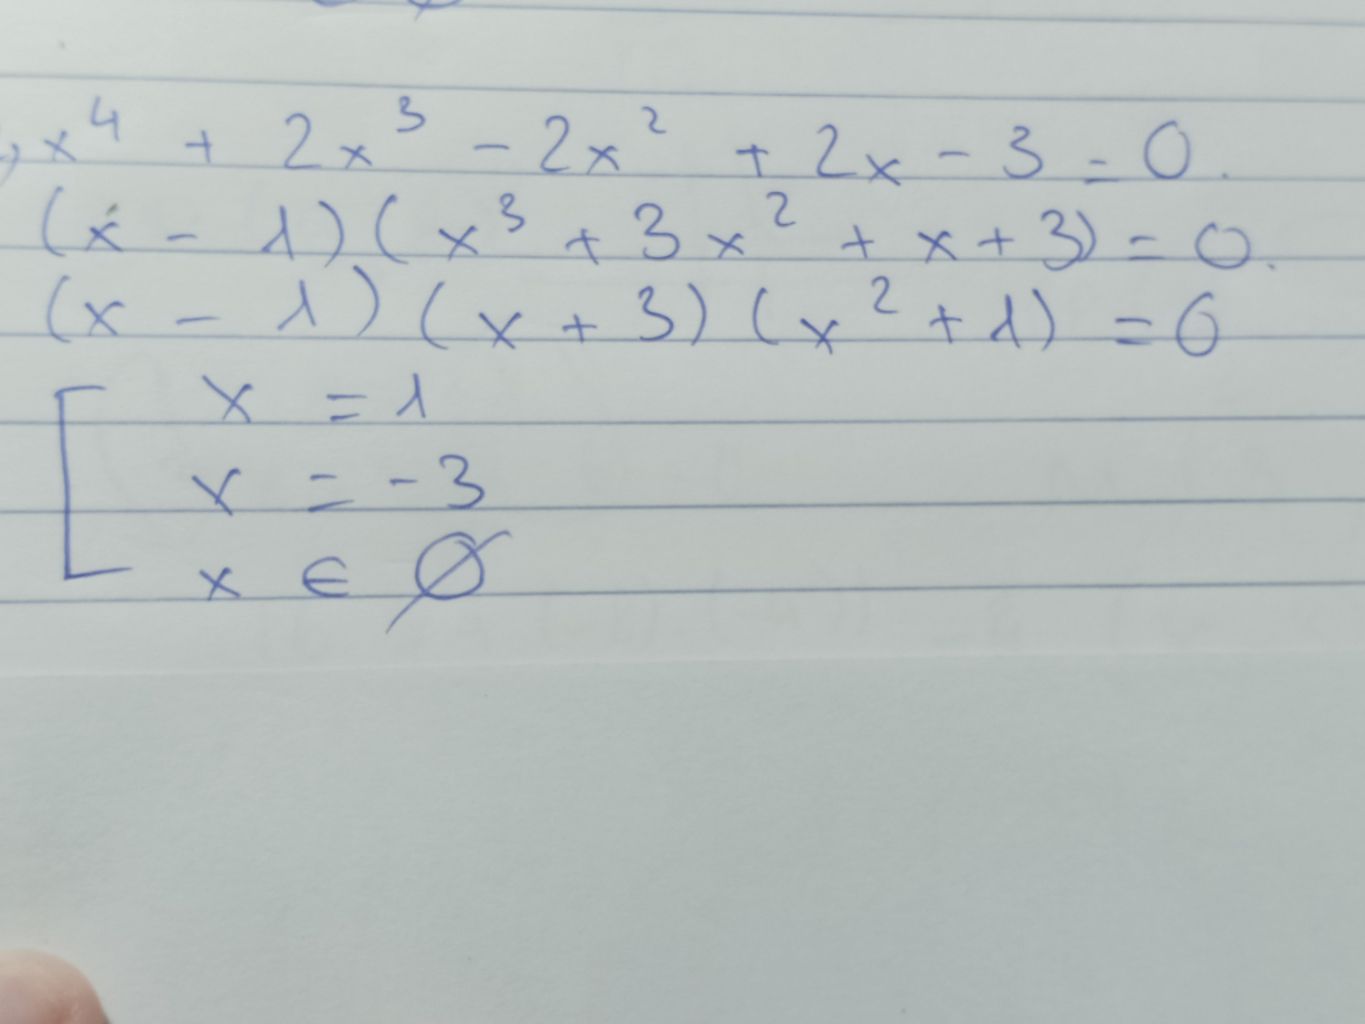 x⁴ + 2x³ - 2x² + 2x - 3 = 0.
(x - 1)(x³ + 3x² + x + 3) = 0.
(x - 1)(x + 3)(x² + 1) = 0
x = 1
x = -3
x ∈ ∅